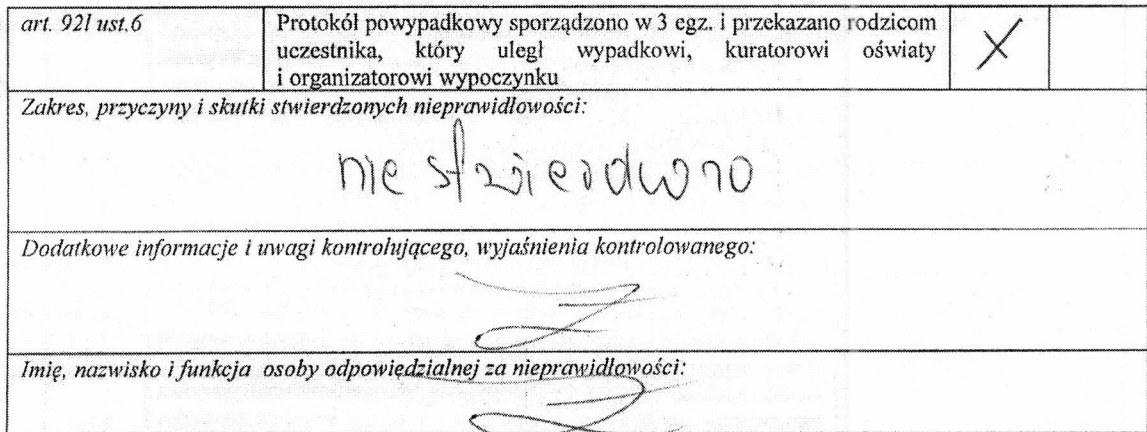 art. 92l ust.6
Protokół powypadkowy sporządzono w 3 egz. i przekazano rodzicom
uczestnika, który uległ wypadkowi, kuratorowi oświaty
i organizatorowi wypoczynku
X
Zakres, przyczyny i skutki stwierdzonych nieprawidłowości:
nie stwierdzono
Dodatkowe informacje i uwagi kontrolującego, wyjaśnienia kontrolowanego:
Imię, nazwisko i funkcja osoby odpowiedzialnej za nieprawidłowości: